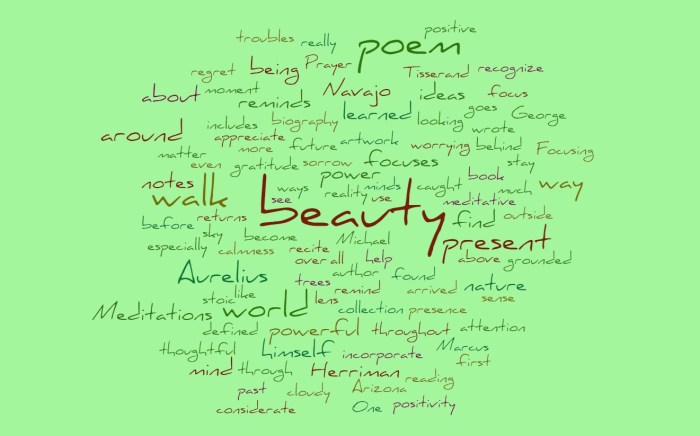 positive
troubles really poem
regret being Prayer Tisserand recognize
about moment Navajo ideas focus
reminds learned looking goes George
includes biography wrote
around appreciate future artwork worrying behind Focusing
matter more
even gratitude sorrow focuses stay
notes ways power minds caught book much way
walk see beauty reality use meditative
before returns find outside
sky become Michael present
especially calmness recite above grounded
over all help
Aurelius trees author found nature
stoic like lens remind arrived sense
Meditations world collection presence
defined powerful throughout attention
thoughtful himself incorporate Marcus
mind through Herriman reading first
past cloudy Arizona
considerate One positivity